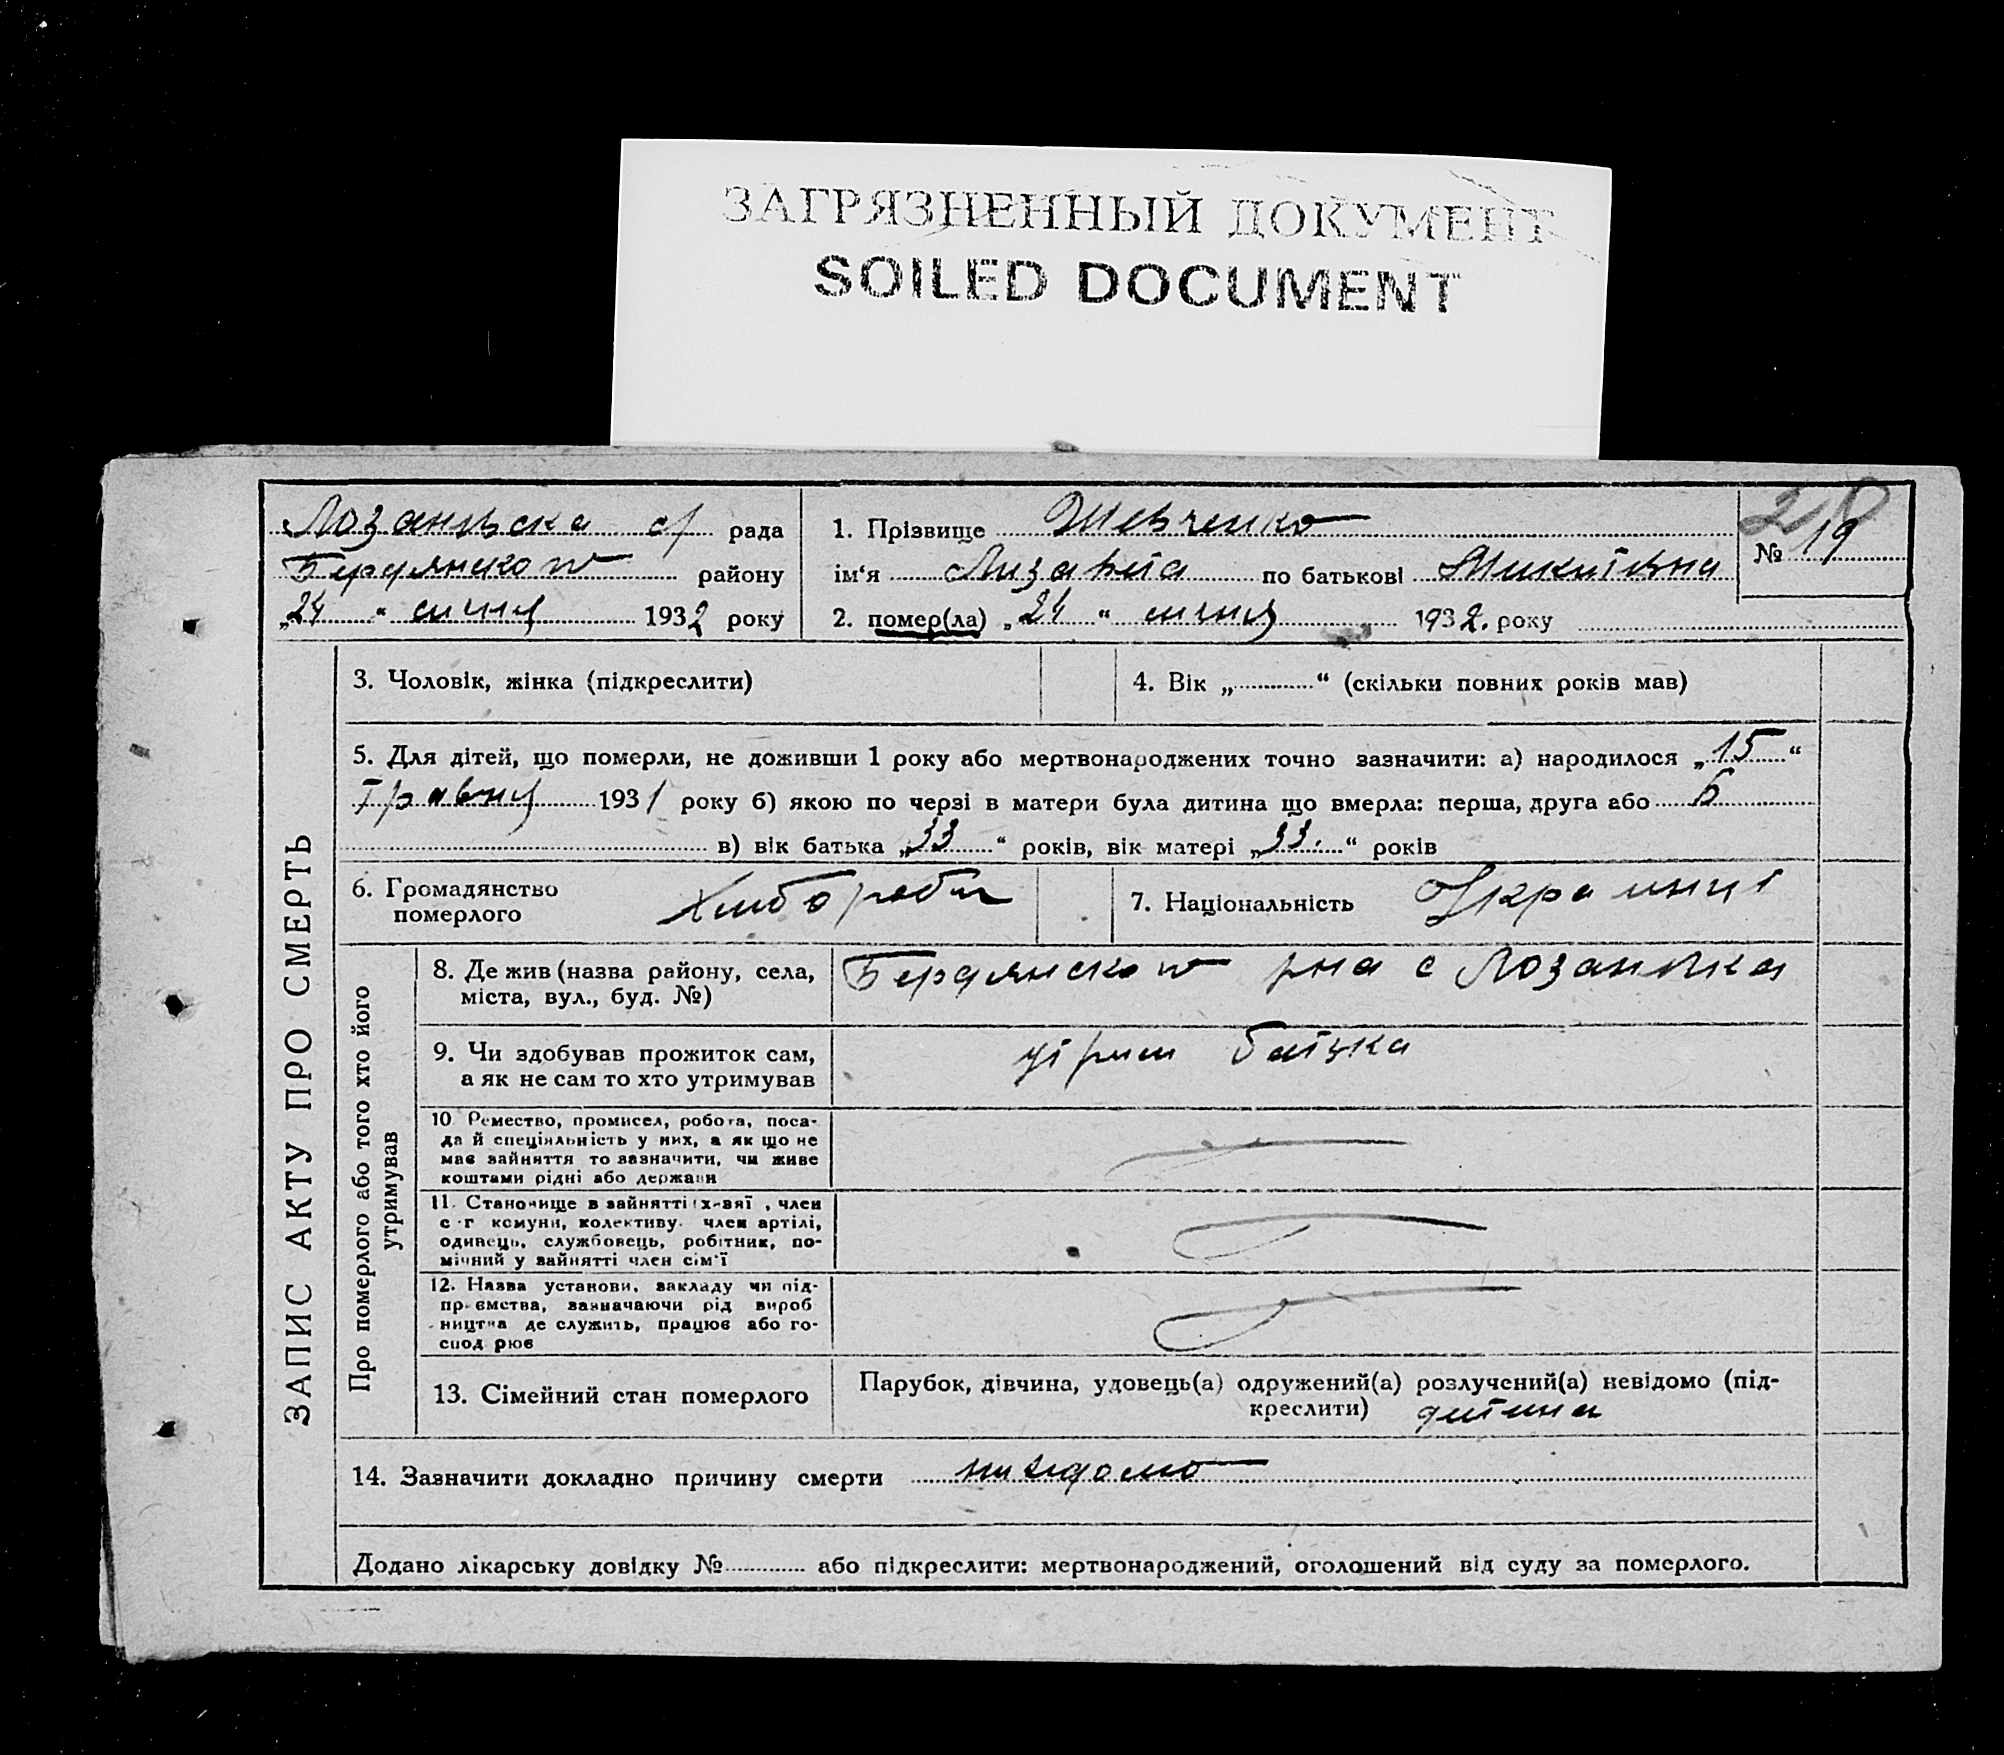 ЗАГРЯЗНЕННЫЙ ДОКУМЕНТ
SOILED DOCUMENT
Лозанівська с/ рада
Бердянского району
„24 “ січня 1932 року
1. Прізвище Шевченко
ім‘я Лизавета по батькові Микитівна
2. помер(ла) „ 24 “ січня 1932. року
28
№ 19
ЗАПИС АКТУ ПРО СМЕРТЬ
3. Чоловік, жінка (підкреслити)
4. Вік „ “ (скільки повних років мав)
5. Для дітей, що померли, не доживши 1 року або мертвонароджених точно зазначити: а) народилося „ 15 “
Травня 1931 року б) якою по черзі в матери була дитина що вмерла: перша, друга або 6
в) вік батька „ 33 “ років, вік матері „ 33. “ років
6. Громадянство
померлого
7. Національність
Про померлого або того хто його
утримував
8. Де жив (назва району, села,
міста, вул., буд. №)
Бердянского рна с Лозанівка
9. Чи здобував прожиток сам,
а як не сам то хто утримував
батька
10 Ремество, промисел, робота, поса-
да й спеціяльність у них, а як що не
має зайняття то зазначити, чи живе
коштами рідні або держави
11. Становище в зайнятті , член
с-г комуни, колективу, член артілі,
одивець, службовець, робітник, по-
мічний у зайнятті член сім‘ї
12. Назва установи, закладу чи під-
приємства, зазначаючи рід вироб
ництва де служить, працює або го-
спод рює
13. Сімейний стан померлого
Парубок, дівчина, удовець(а) одружений(а) розлучений(а) невідомо (під-
креслити) дитина
14. Зазначити докладно причину смерти невідомо
Додано лікарську довідку № або підкреслити: мертвонароджений, оголошений від суду за померлого.